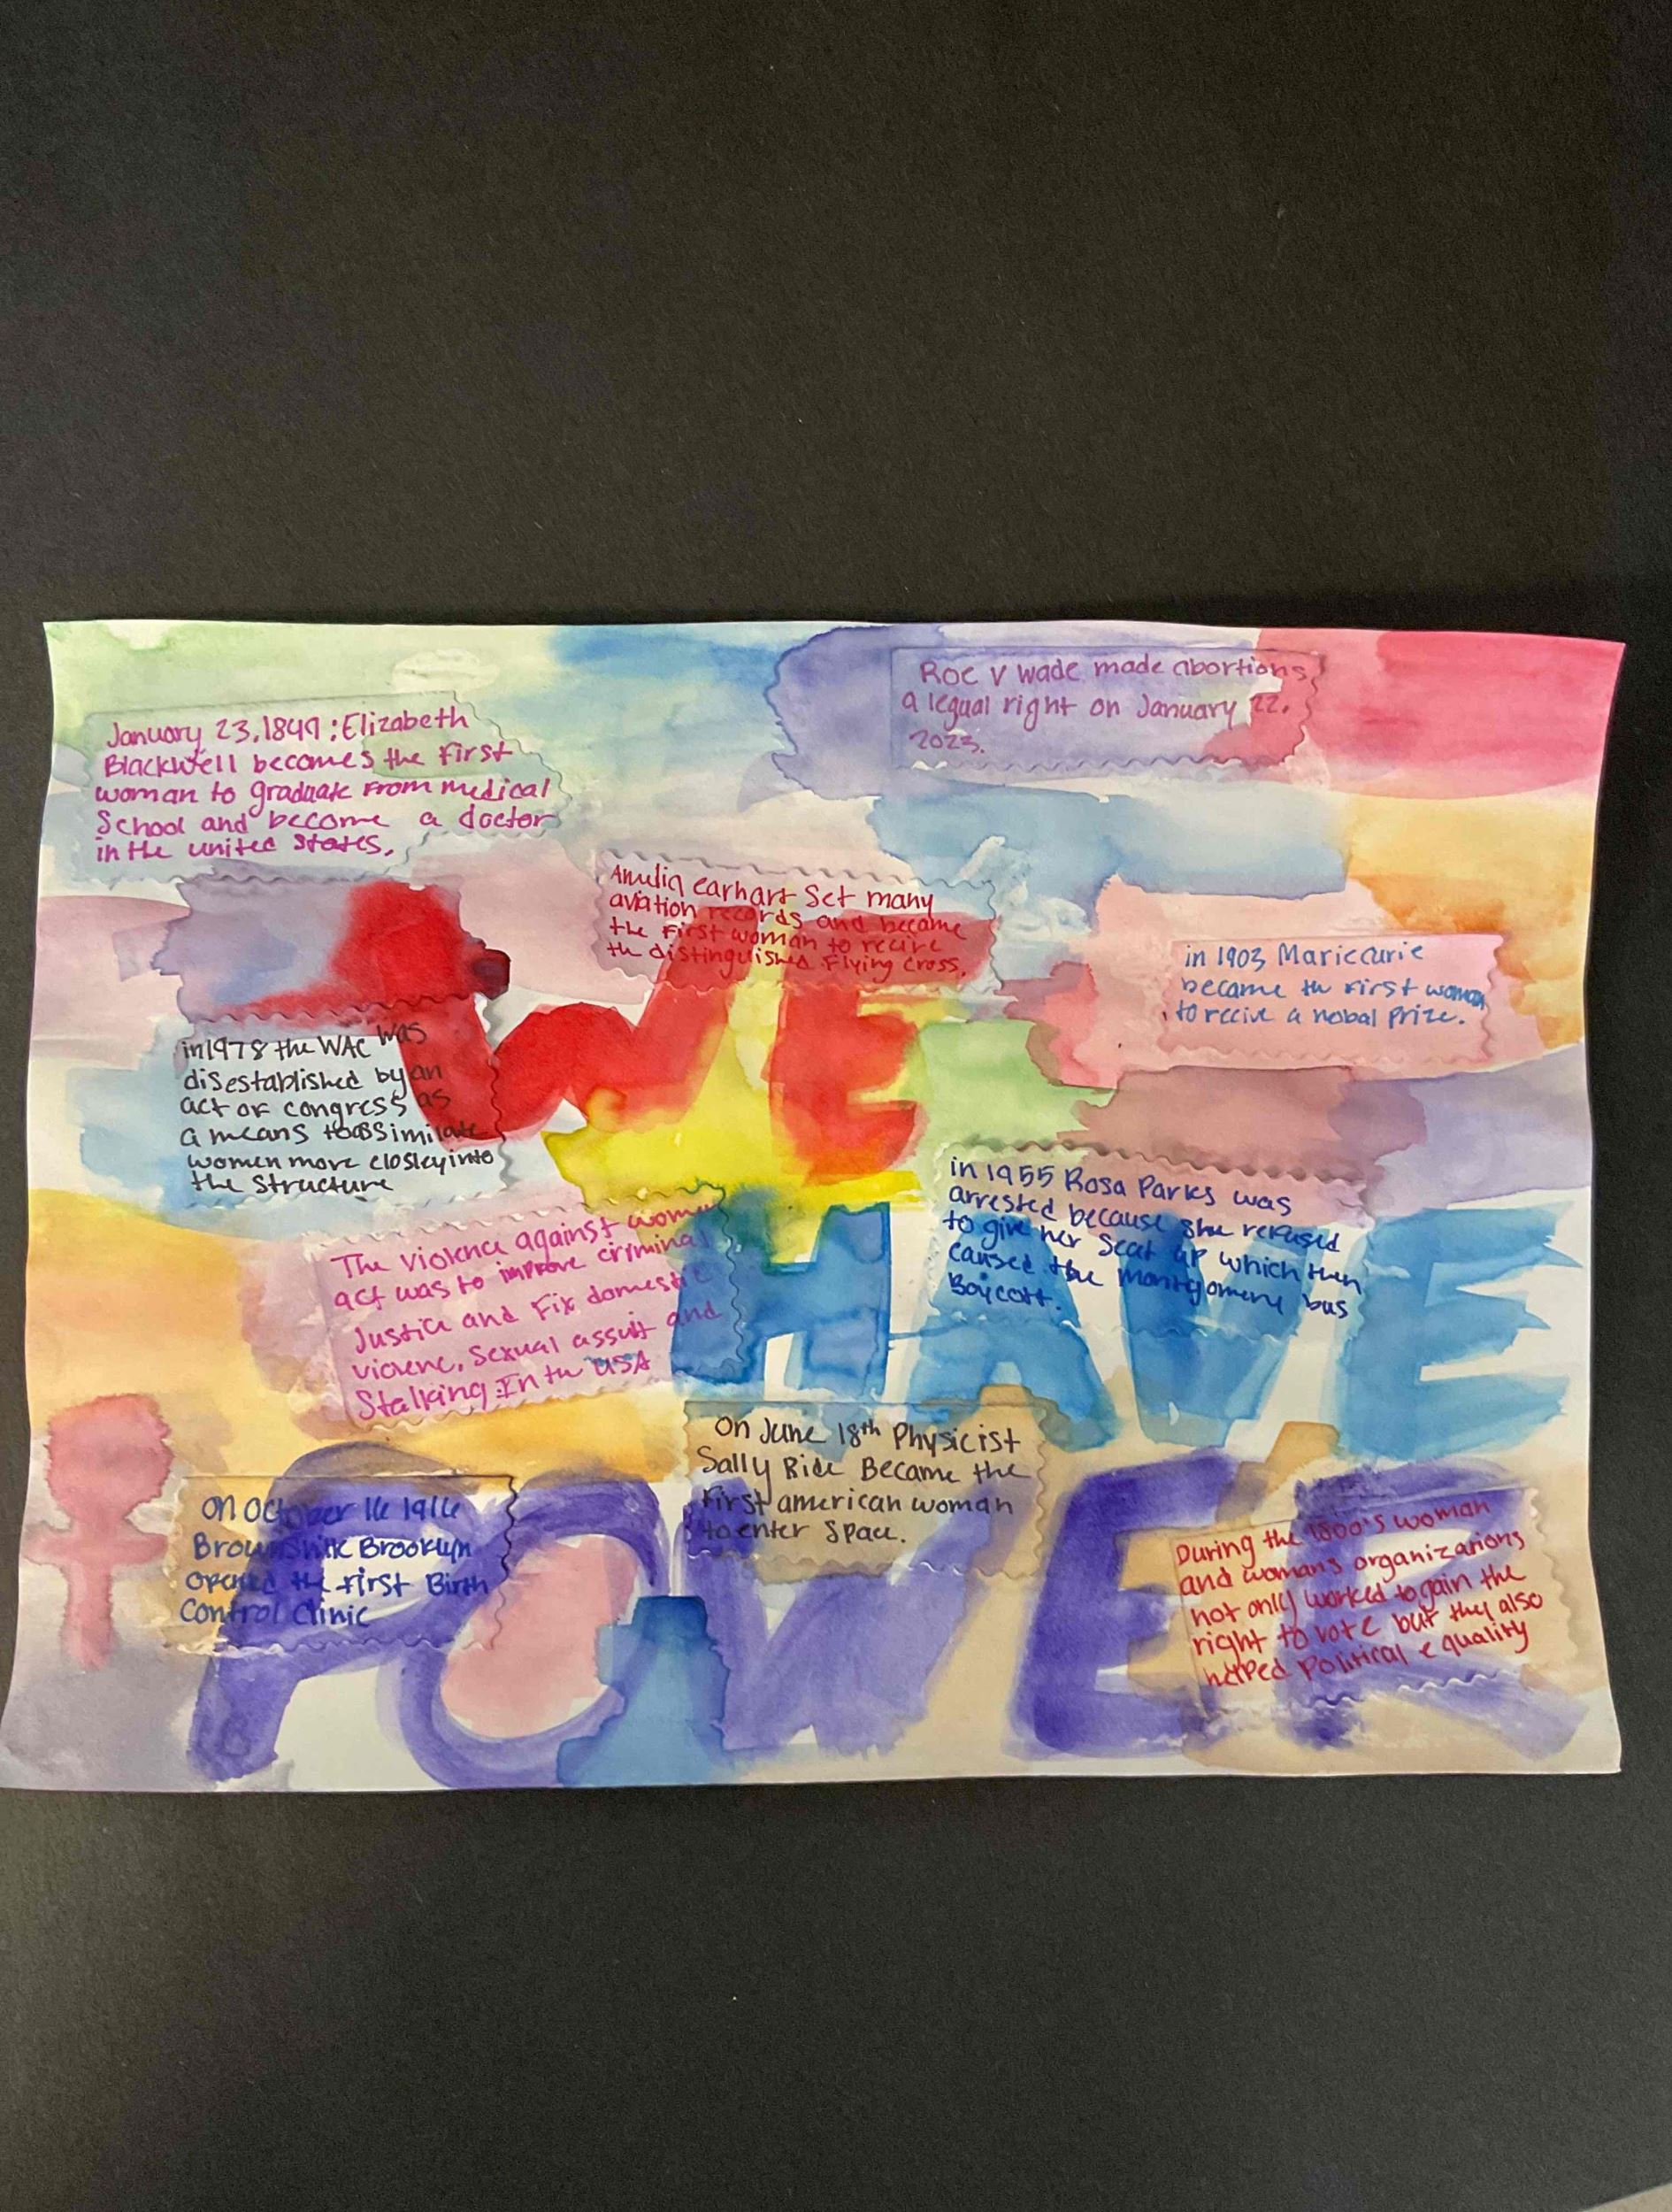 January 23, 1849 : Elizabeth
Blackwell becomes the first
woman to graduate from medical
School and become a doctor
in the united States.
Roe v wade made abortions
a legual right on January 22,
2023.
Amelia earhart Set many
aviation records and became
the first woman to recive
the distinguished Flying Cross.
in 1903 Marie curie
became the first woman
to recive a nobal prize.
WE
in 1978 the WAC was
disestablished by an
act of congress as
a means to assimilate
women more closley into
the structure
in 1955 Rosa Parks was
arrested because she refused
to give her seat up which then
caused the montgomery bus
Boycott.
The violence against women
act was to improve criminal
Justice and Fix domestic
violenc, Sexual assult and
Stalking In the USA
HAVE
On June 18th Physicist
Sally Ride Became the
First american woman
to enter Space.
On October 16 1916
Brooklyn
opened the first Birth
Control Clinic
During the 1800's woman
and womans organizations
not only worked to gain the
right to vote but they also
helped Political equality
POWER